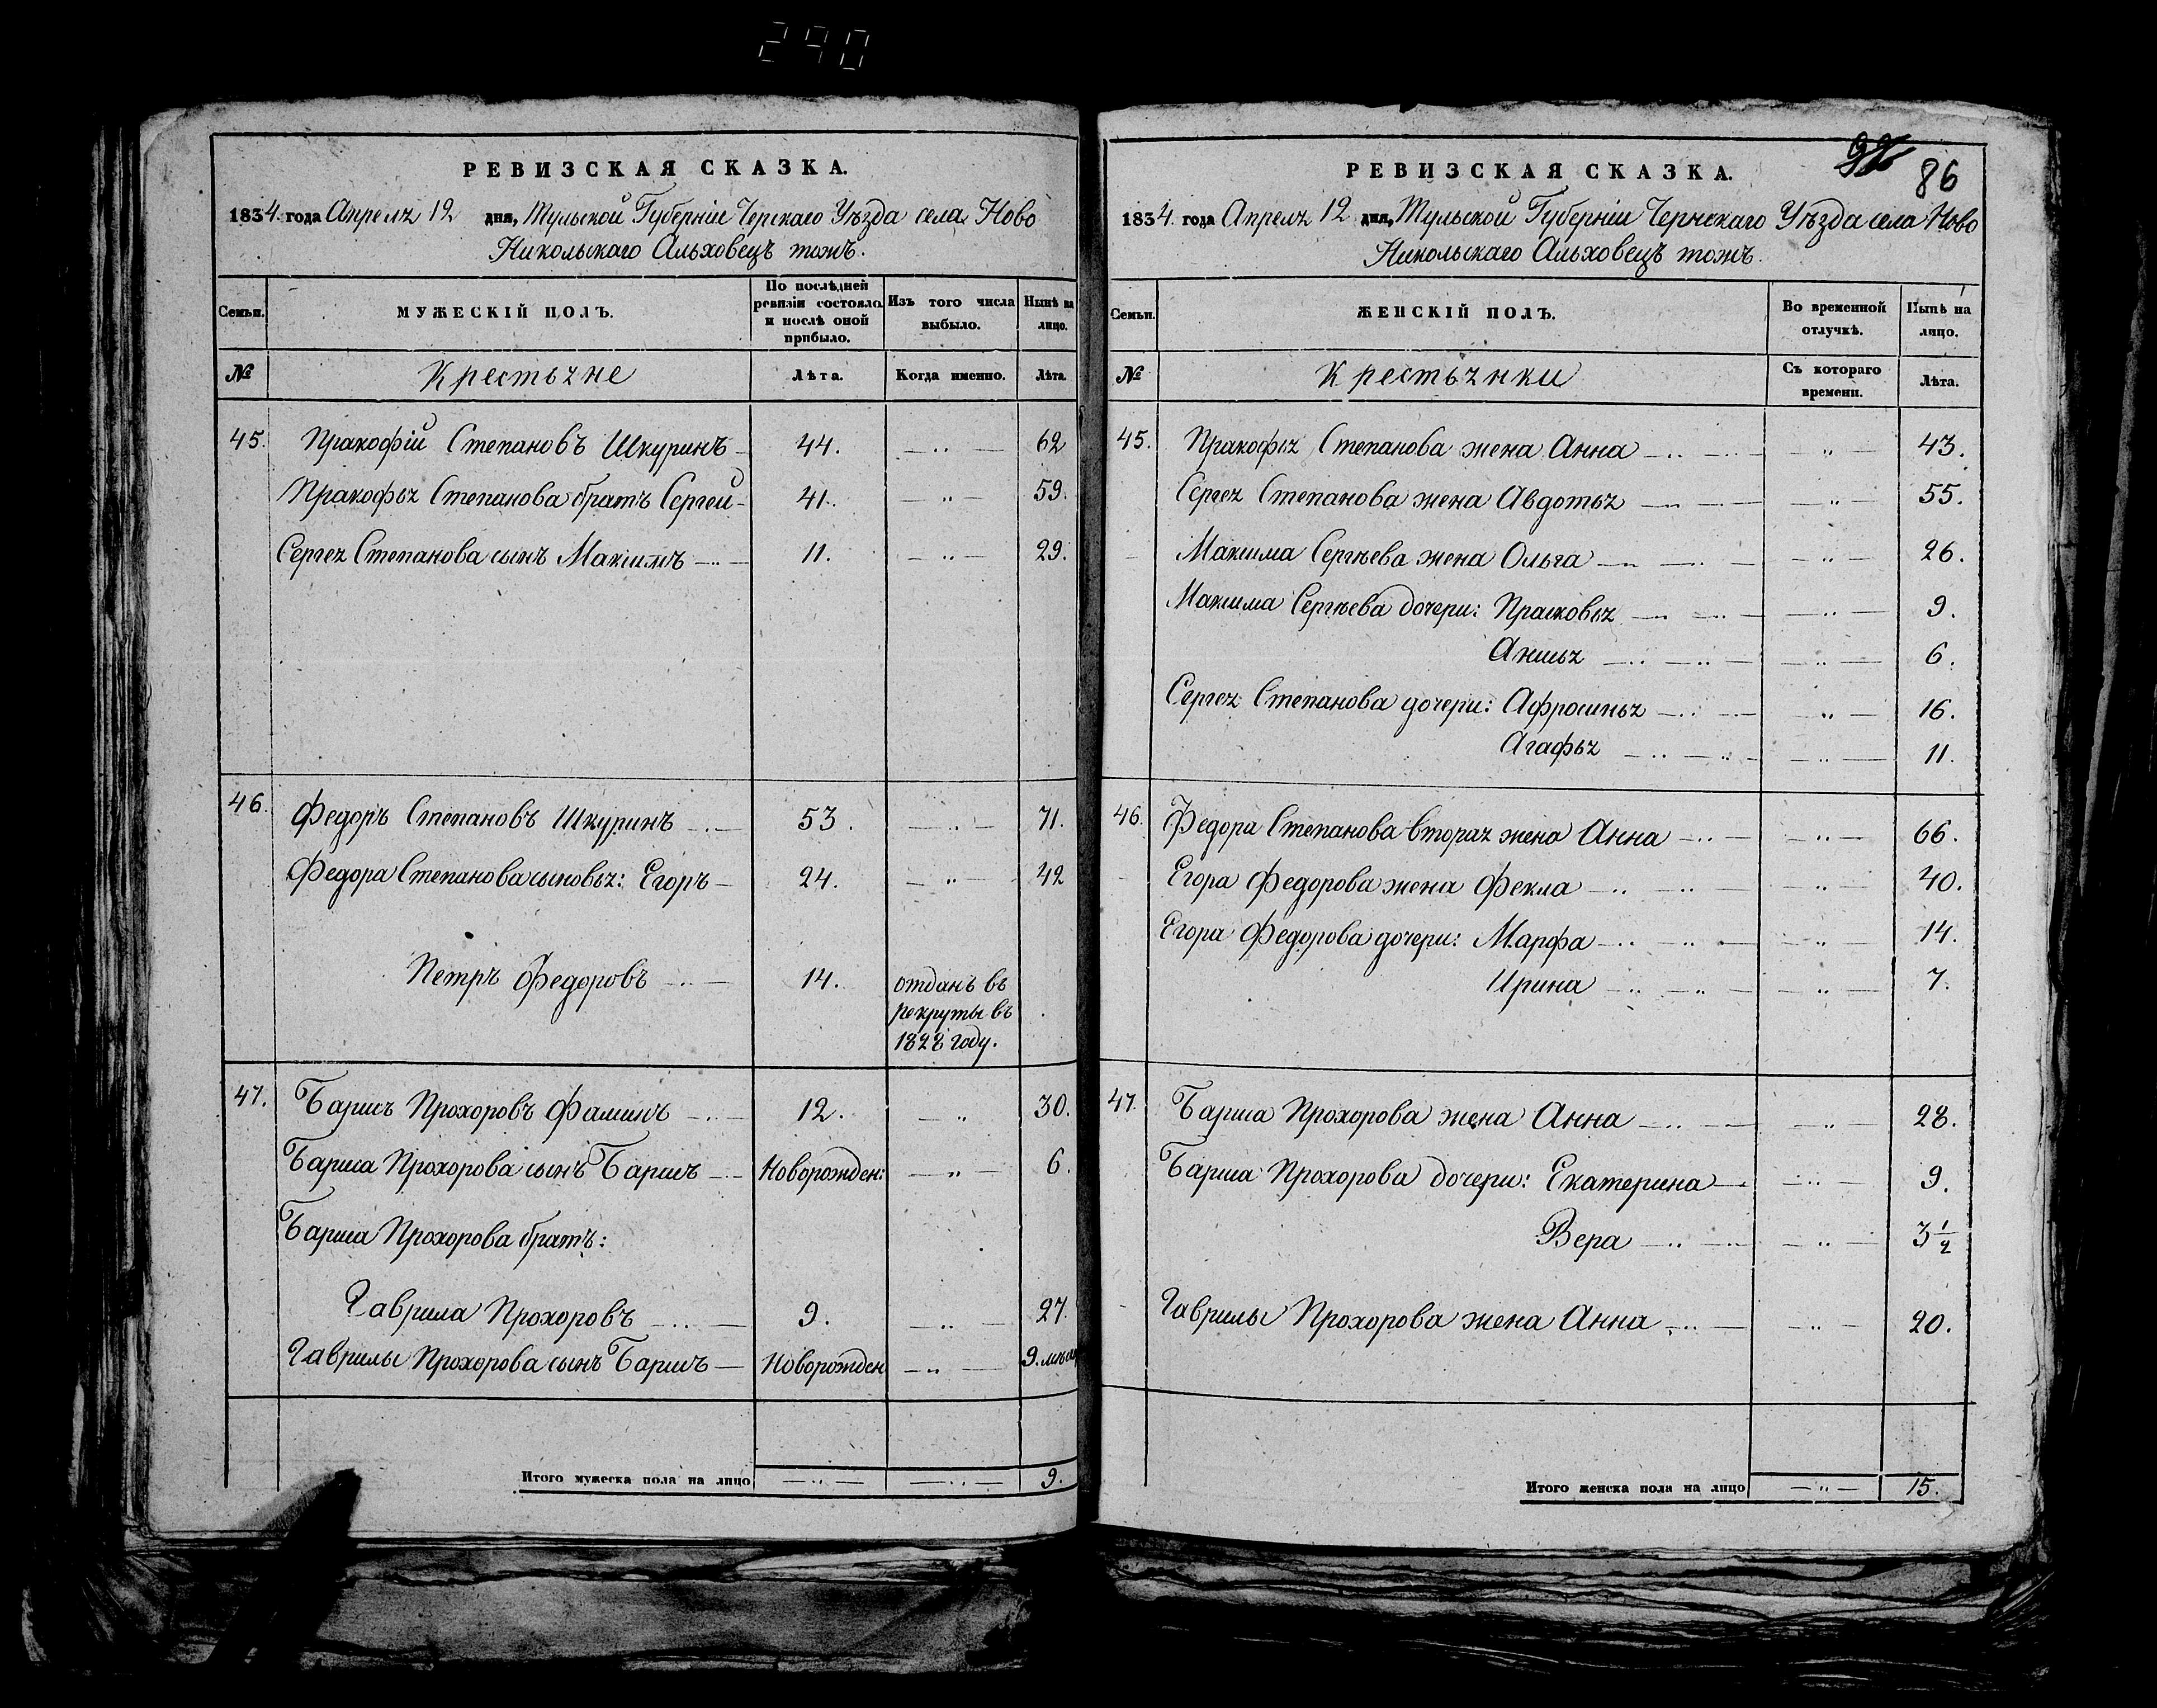 290
РЕВИЗСКАЯ СКАЗКА.
1834 года Апреля 12 дня, Тульской Губерніи Черскаго Уѣзда села Ново
Никольскаго Альховецъ тожъ.
Семьи.
МУЖЕСКІЙ ПОЛЪ.
По послѣдней ревизіи состояло и послѣ оной прибыло.
Изъ того числа выбыло.
Нынѣ на лицо.
№
Крестьяне
Лѣта.
Когда именно.
Лѣта.
45. Пракофій Степановъ Шкуринъ 44. 62
Пракофья Степанова братъ Сергей 41. 59.
Сергея Степанова сынъ Максимъ 11. 29.
46. Федоръ Степановъ Шкуринъ 53. 71.
Федора Степанова сыновья: Егоръ 24. 42
Петръ Федоровъ 14. отданъ въ
рекруты въ
1828 году.
47. Барисъ Прохоровъ Фаминъ 12. 30.
Бариса Прохорова сынъ Барисъ Новорожден: 6.
Бариса Прохорова братъ:
Гаврила Прохоровъ 9. 27.
Гаврилы Прохорова сынъ Барисъ Новорожден 9. мѣся
Итого мужеска пола на лицо 9.
86
РЕВИЗСКАЯ СКАЗКА.
1834 года Апреля 12 дня, Тульской Губерніи Чернскаго Уѣзда села Ново
Никольскаго Альховецъ тожъ.
Семьи.
ЖЕНСКІЙ ПОЛЪ.
Во временной отлучкѣ.
Нынѣ на лицо.
№
Крестьянки
Съ котораго времени.
Лѣта.
45. Пракофья Степанова жена Анна 43.
Сергея Степанова жена Авдотья 55.
Максима Сергѣева жена Ольга 26.
Максима Сергѣева дочери: Прасковья 9.
Анисья 6.
Сергея Степанова дочери: Афросинья 16.
Агафья 11.
46. Федора Степанова вторая жена Анна 66.
Егора Федорова жена Фекла 40.
Егора Федорова дочери: Марфа 14.
Ирина 7.
47. Бариса Прохорова жена Анна 28.
Бариса Прохорова дочери: Екатерина 9.
Вера 3 1/2
Гаврилы Прохорова жена Анна 20.
Итого женска пола на лицо 15.